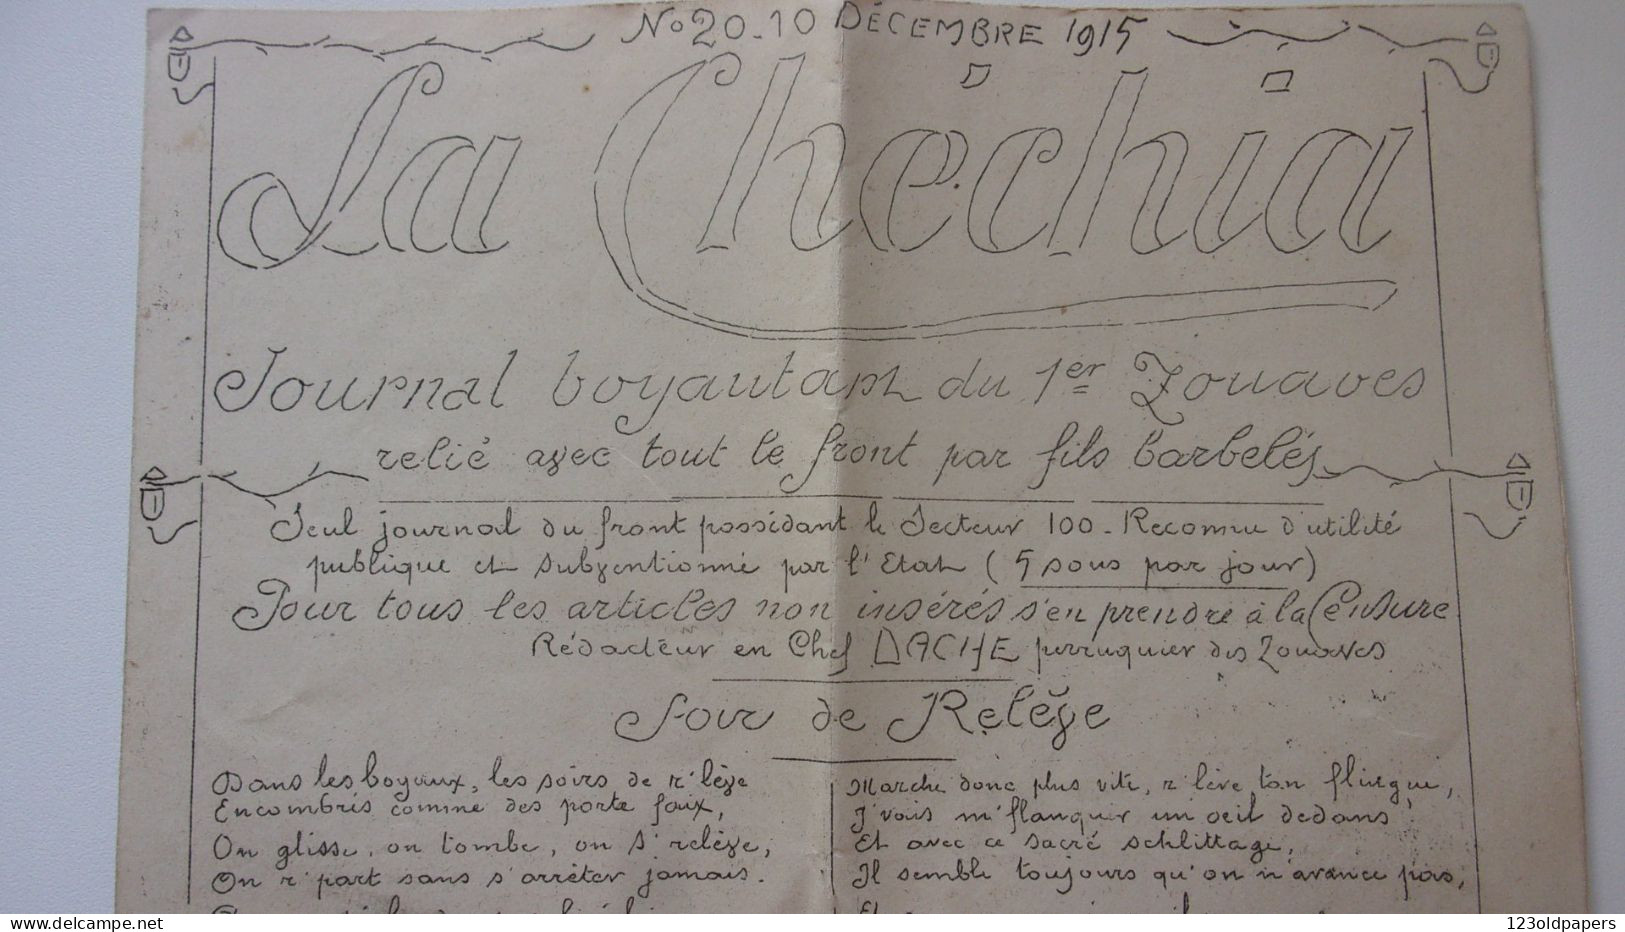 No 20_10 DÉCEMBRE 1915
La Chéchia
Journal boyautant du 1er Zouaves
relié avec tout le front par fils barbelés
Seul journal du front possédant le Secteur 100 - Reconnu d'utilité
publique et subventionné par l'Etat (5 sous par jour)
Pour tous les articles non insérés s'en prendre à la Censure
Rédacteur en Chef DACHE perruquier des Zouaves
Soir de Relève
Dans les boyaux, les soirs de r'lève
Encombrés comme des porte faix,
On glisse, on tombe, on s'relève,
On r'part sans s'arrêter jamais.
Marche donc plus vite, r'lève ton flingue,
J'vais m'flanquer un oeil dedans
Et avec ce sacré schlittage,
Il semble toujours qu'on n'avance pas,
123oldpapers